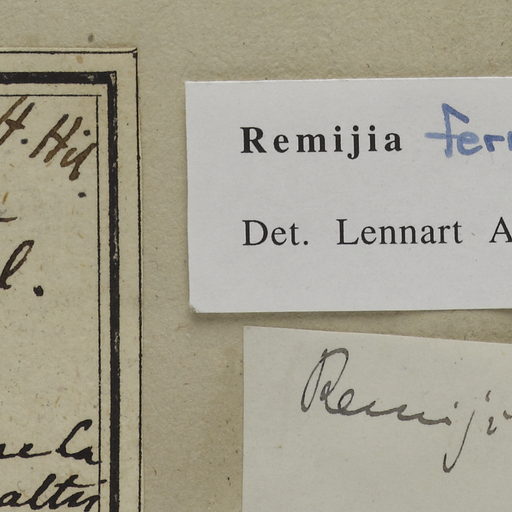 H. Hil.
l.
Remijia ferr
Det. Lennart A
Remiji